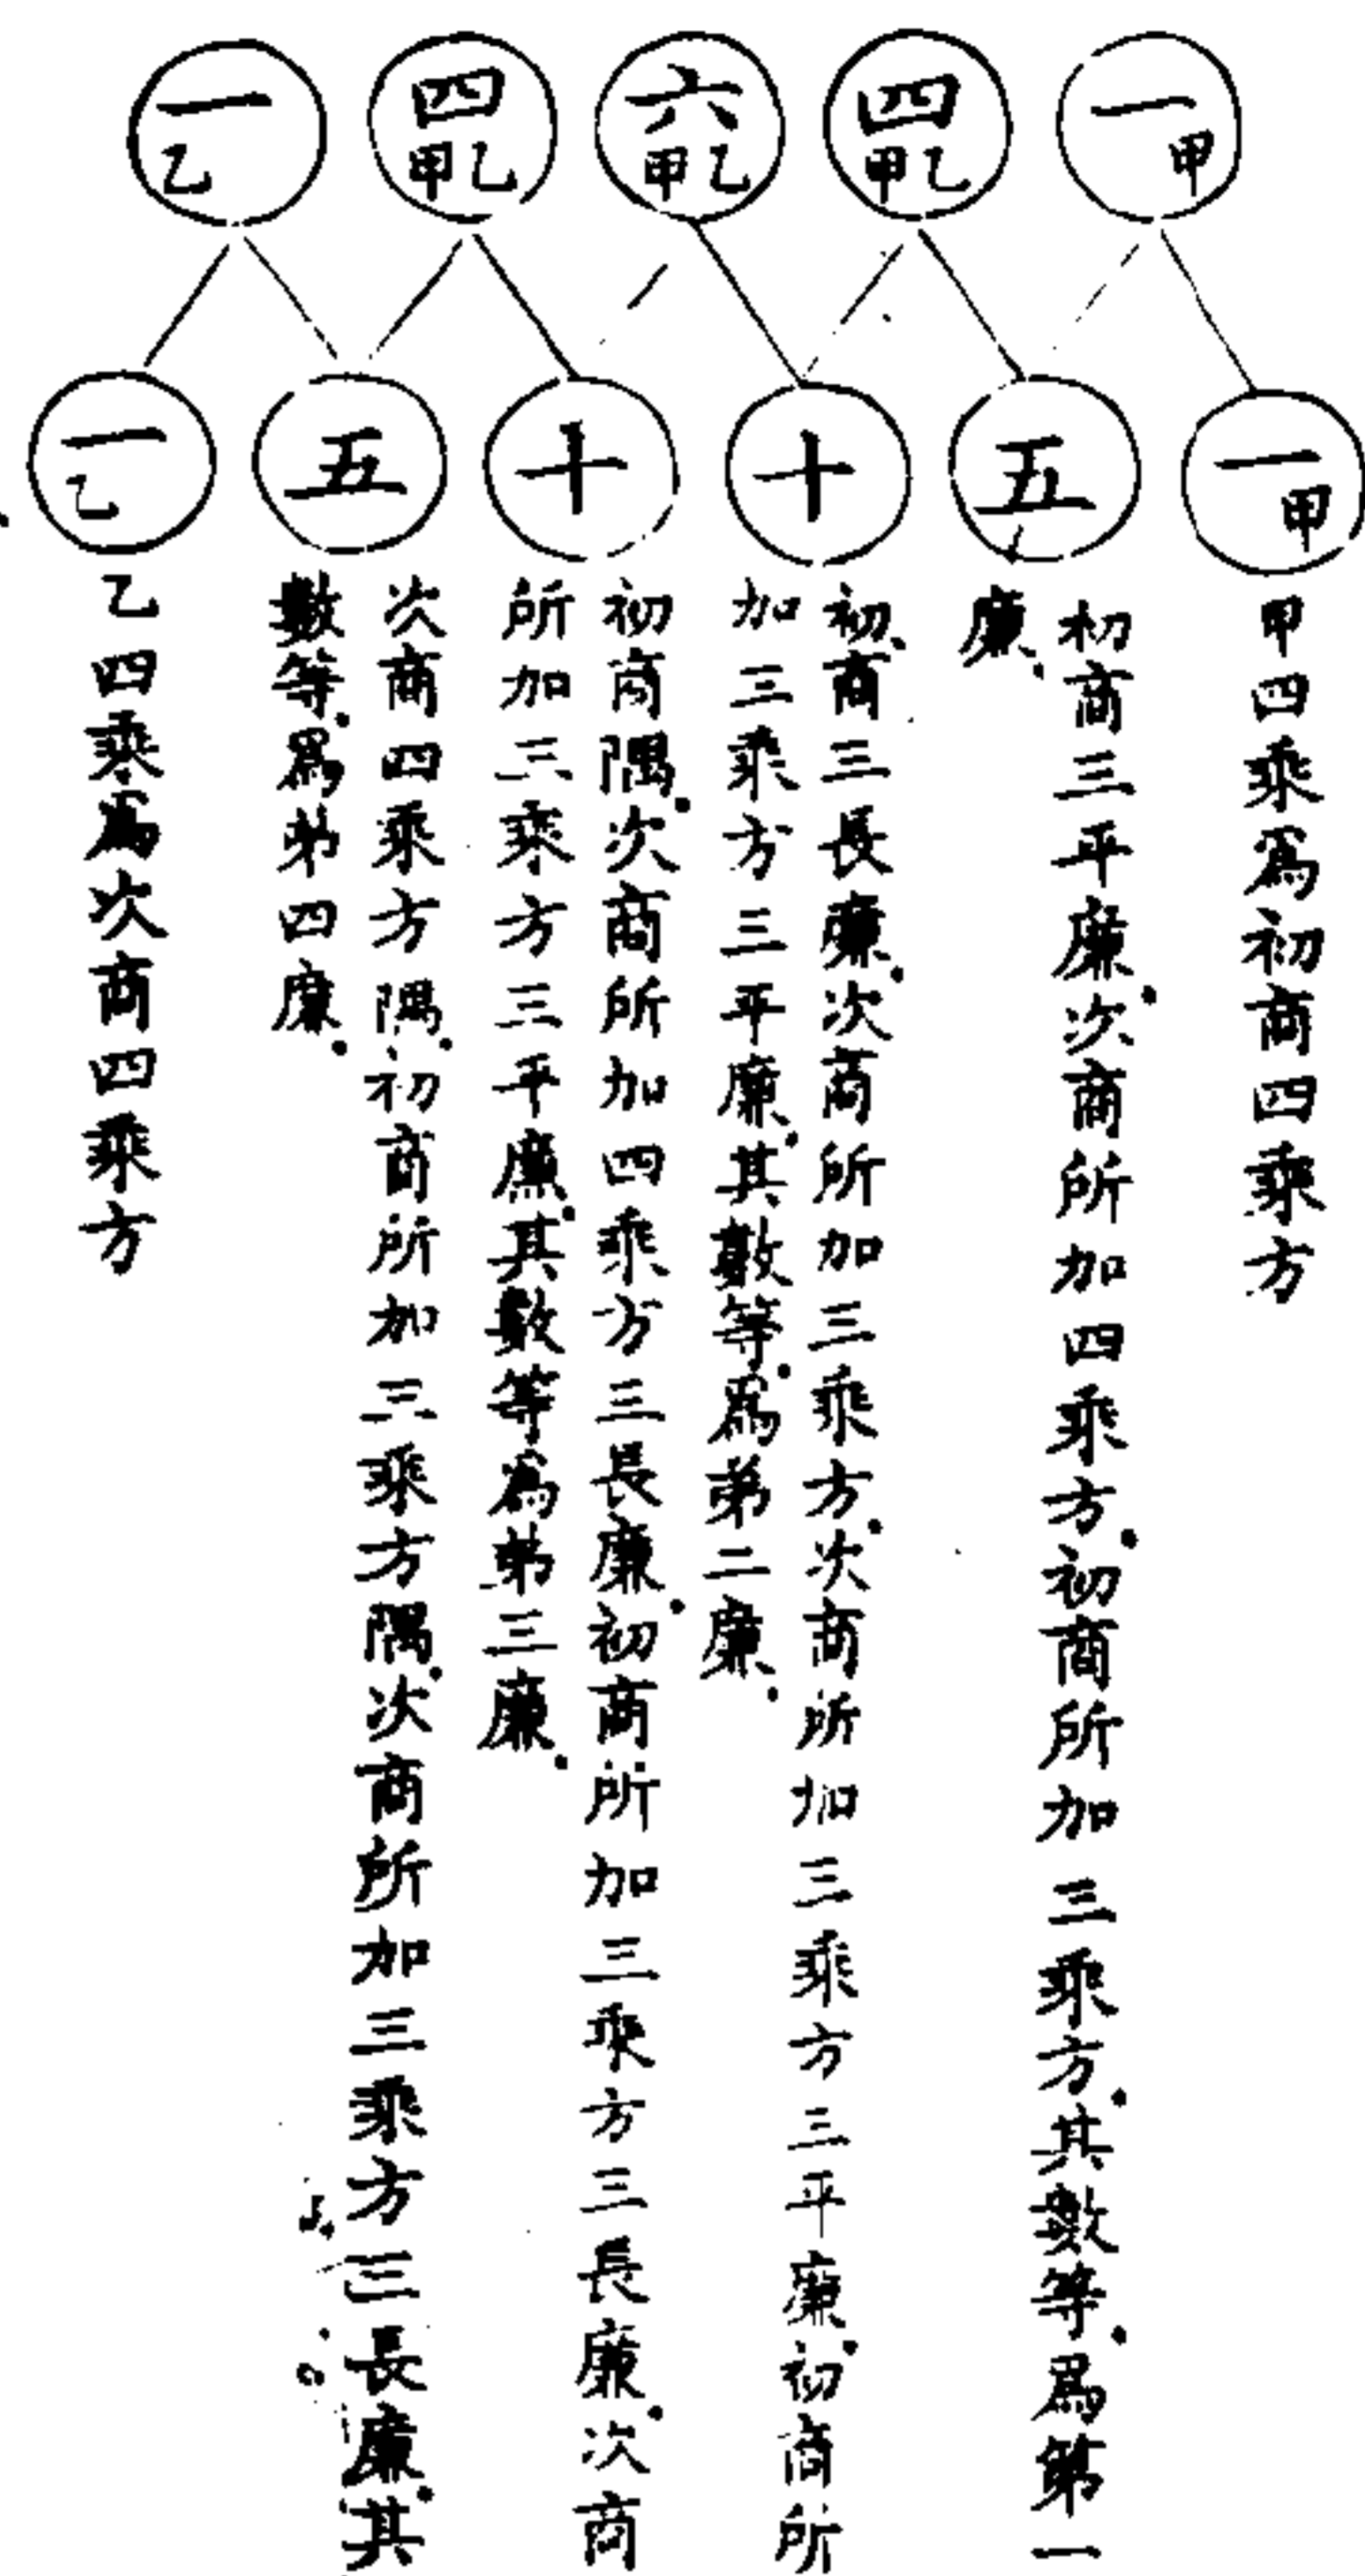 一甲
四甲乙
六甲乙
四甲乙
一乙
一甲
五
十
十
五
一乙
甲四乘爲初商四乘方
初商三平廉。次商所加四乘方。初商所加三乘方。其數等。爲第一
廉。
初商三長廉。次商所加三乘方。次商所加三乘方三平廉。初商所
加三乘方三平廉。其數等。爲弟二廉。
初商隅。次商所加四乘方三長廉。初商所加三乘方三長廉。次商
所加三乘方三平廉。其數等爲弟三廉。
次商四乘方隅。初商所加三乘方隅。次商所加三乘方三長廉。其
數等。爲弟四廉。
乙四乘爲次商四乘方